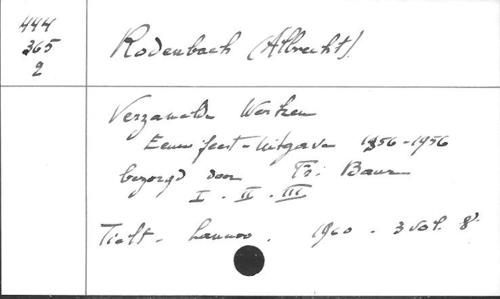 444
365
2
Rodenbach (Albrecht).
Verzamelde Werken
Eeuwfeest-Uitgave 1856-1956
bezorgd door Fr. Baur
I - II - III
Tielt - Lannoo. 1960 - 3 vol. 8°.